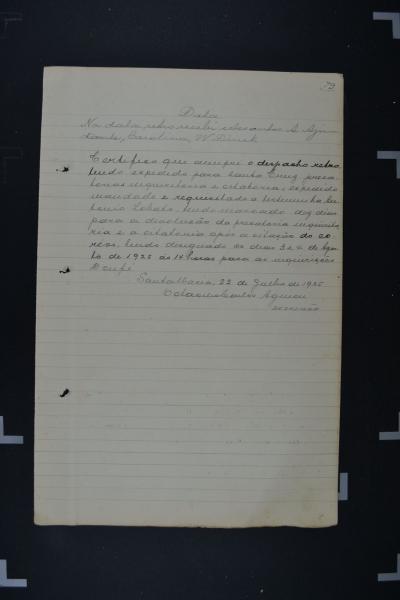 79
Data
Na data retro recebi estes autos. A Aju-
dante, Carolina W. Dinck
Certifico que cumpri o despacho retro,
tendo expedido para Santa Cruz preca-
torias inquiritoria e citatoria, expedido
mandado e requisitado a testemunha
Lobato, tendo marcado dez dias
para a devolução da precatoria inquirito-
ria e a citatoria após a citação do co-
réos, tendo designado os dias 3 e 4 de Agos-
to de 1935 ás 14 horas para as inquirições
Dou fé
Santa Maria, 22 de Julho de 1935
escrivão